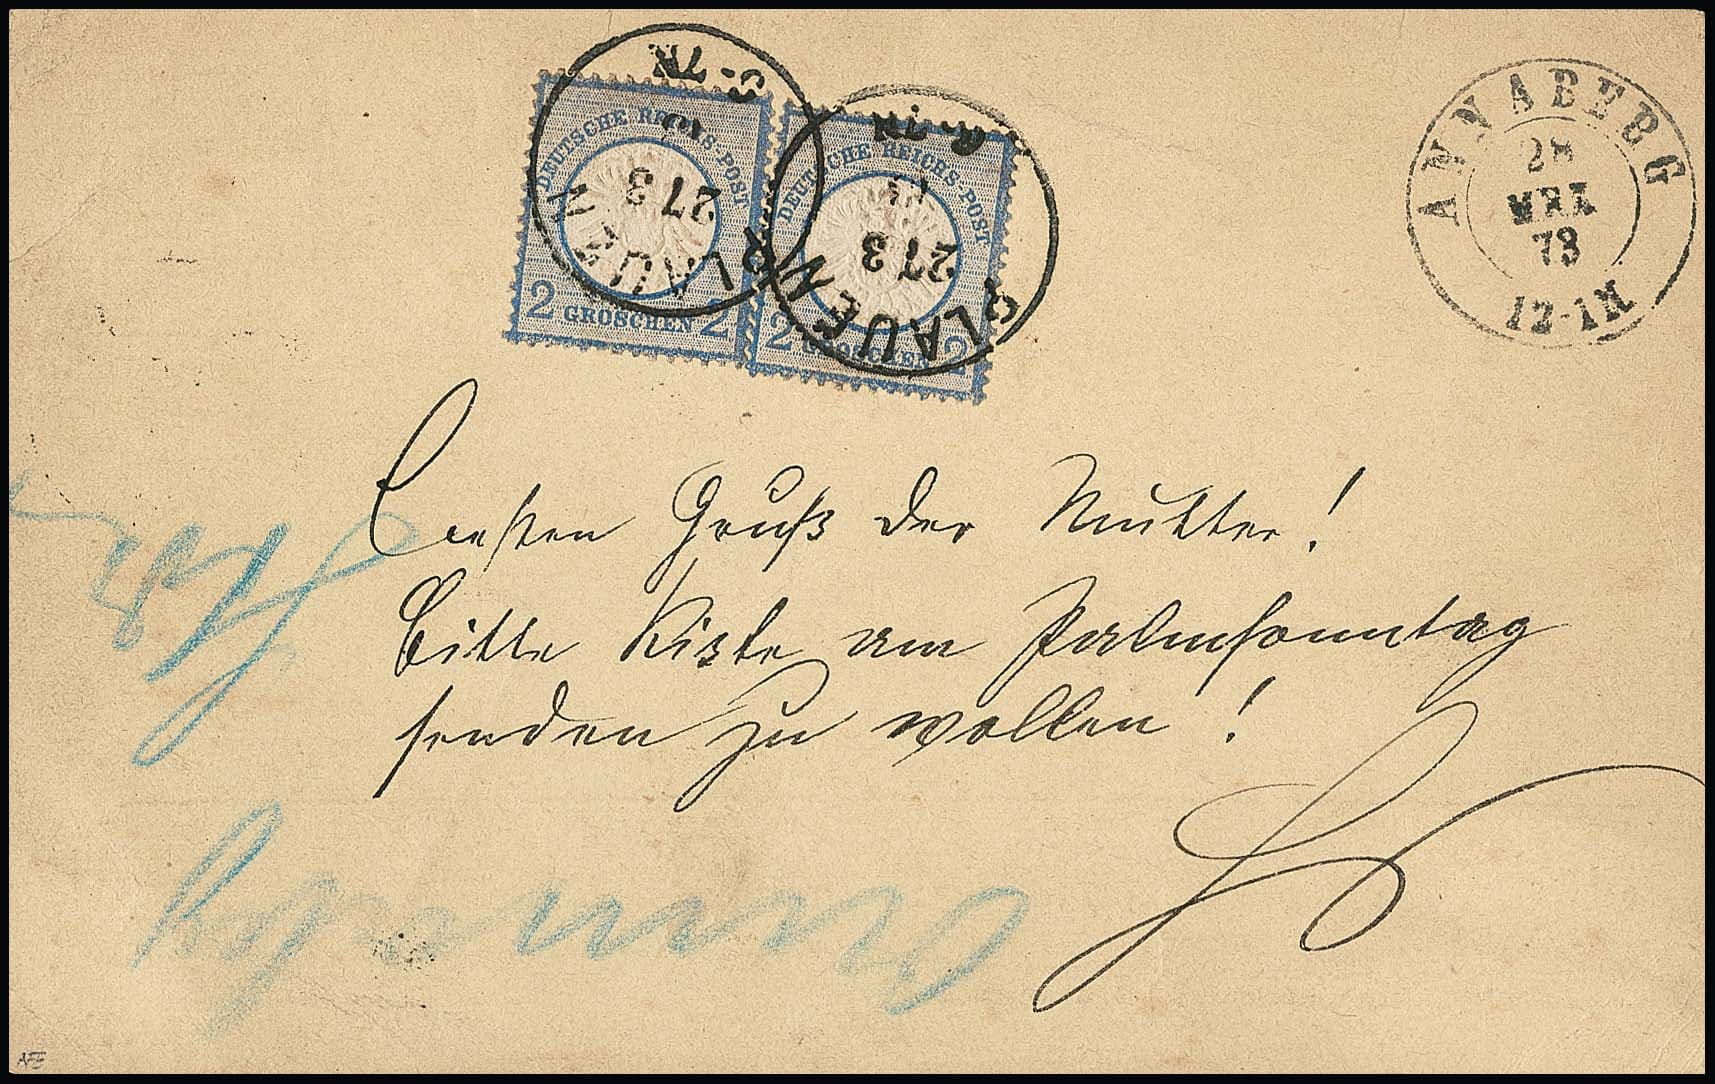 DEUTSCHE REICHS-POST
2 GROSCHEN 2
DEUTSCHE REICHS-POST
2 GROSCHEN 2
PLAUEN
27 3
PLAUEN
27 3
ANNABERG
28
MRZ
73
12-1N
Besten Gruß der Mutter!
Bitte Kiste am Palmsonntag
senden zu wollen!
AFE